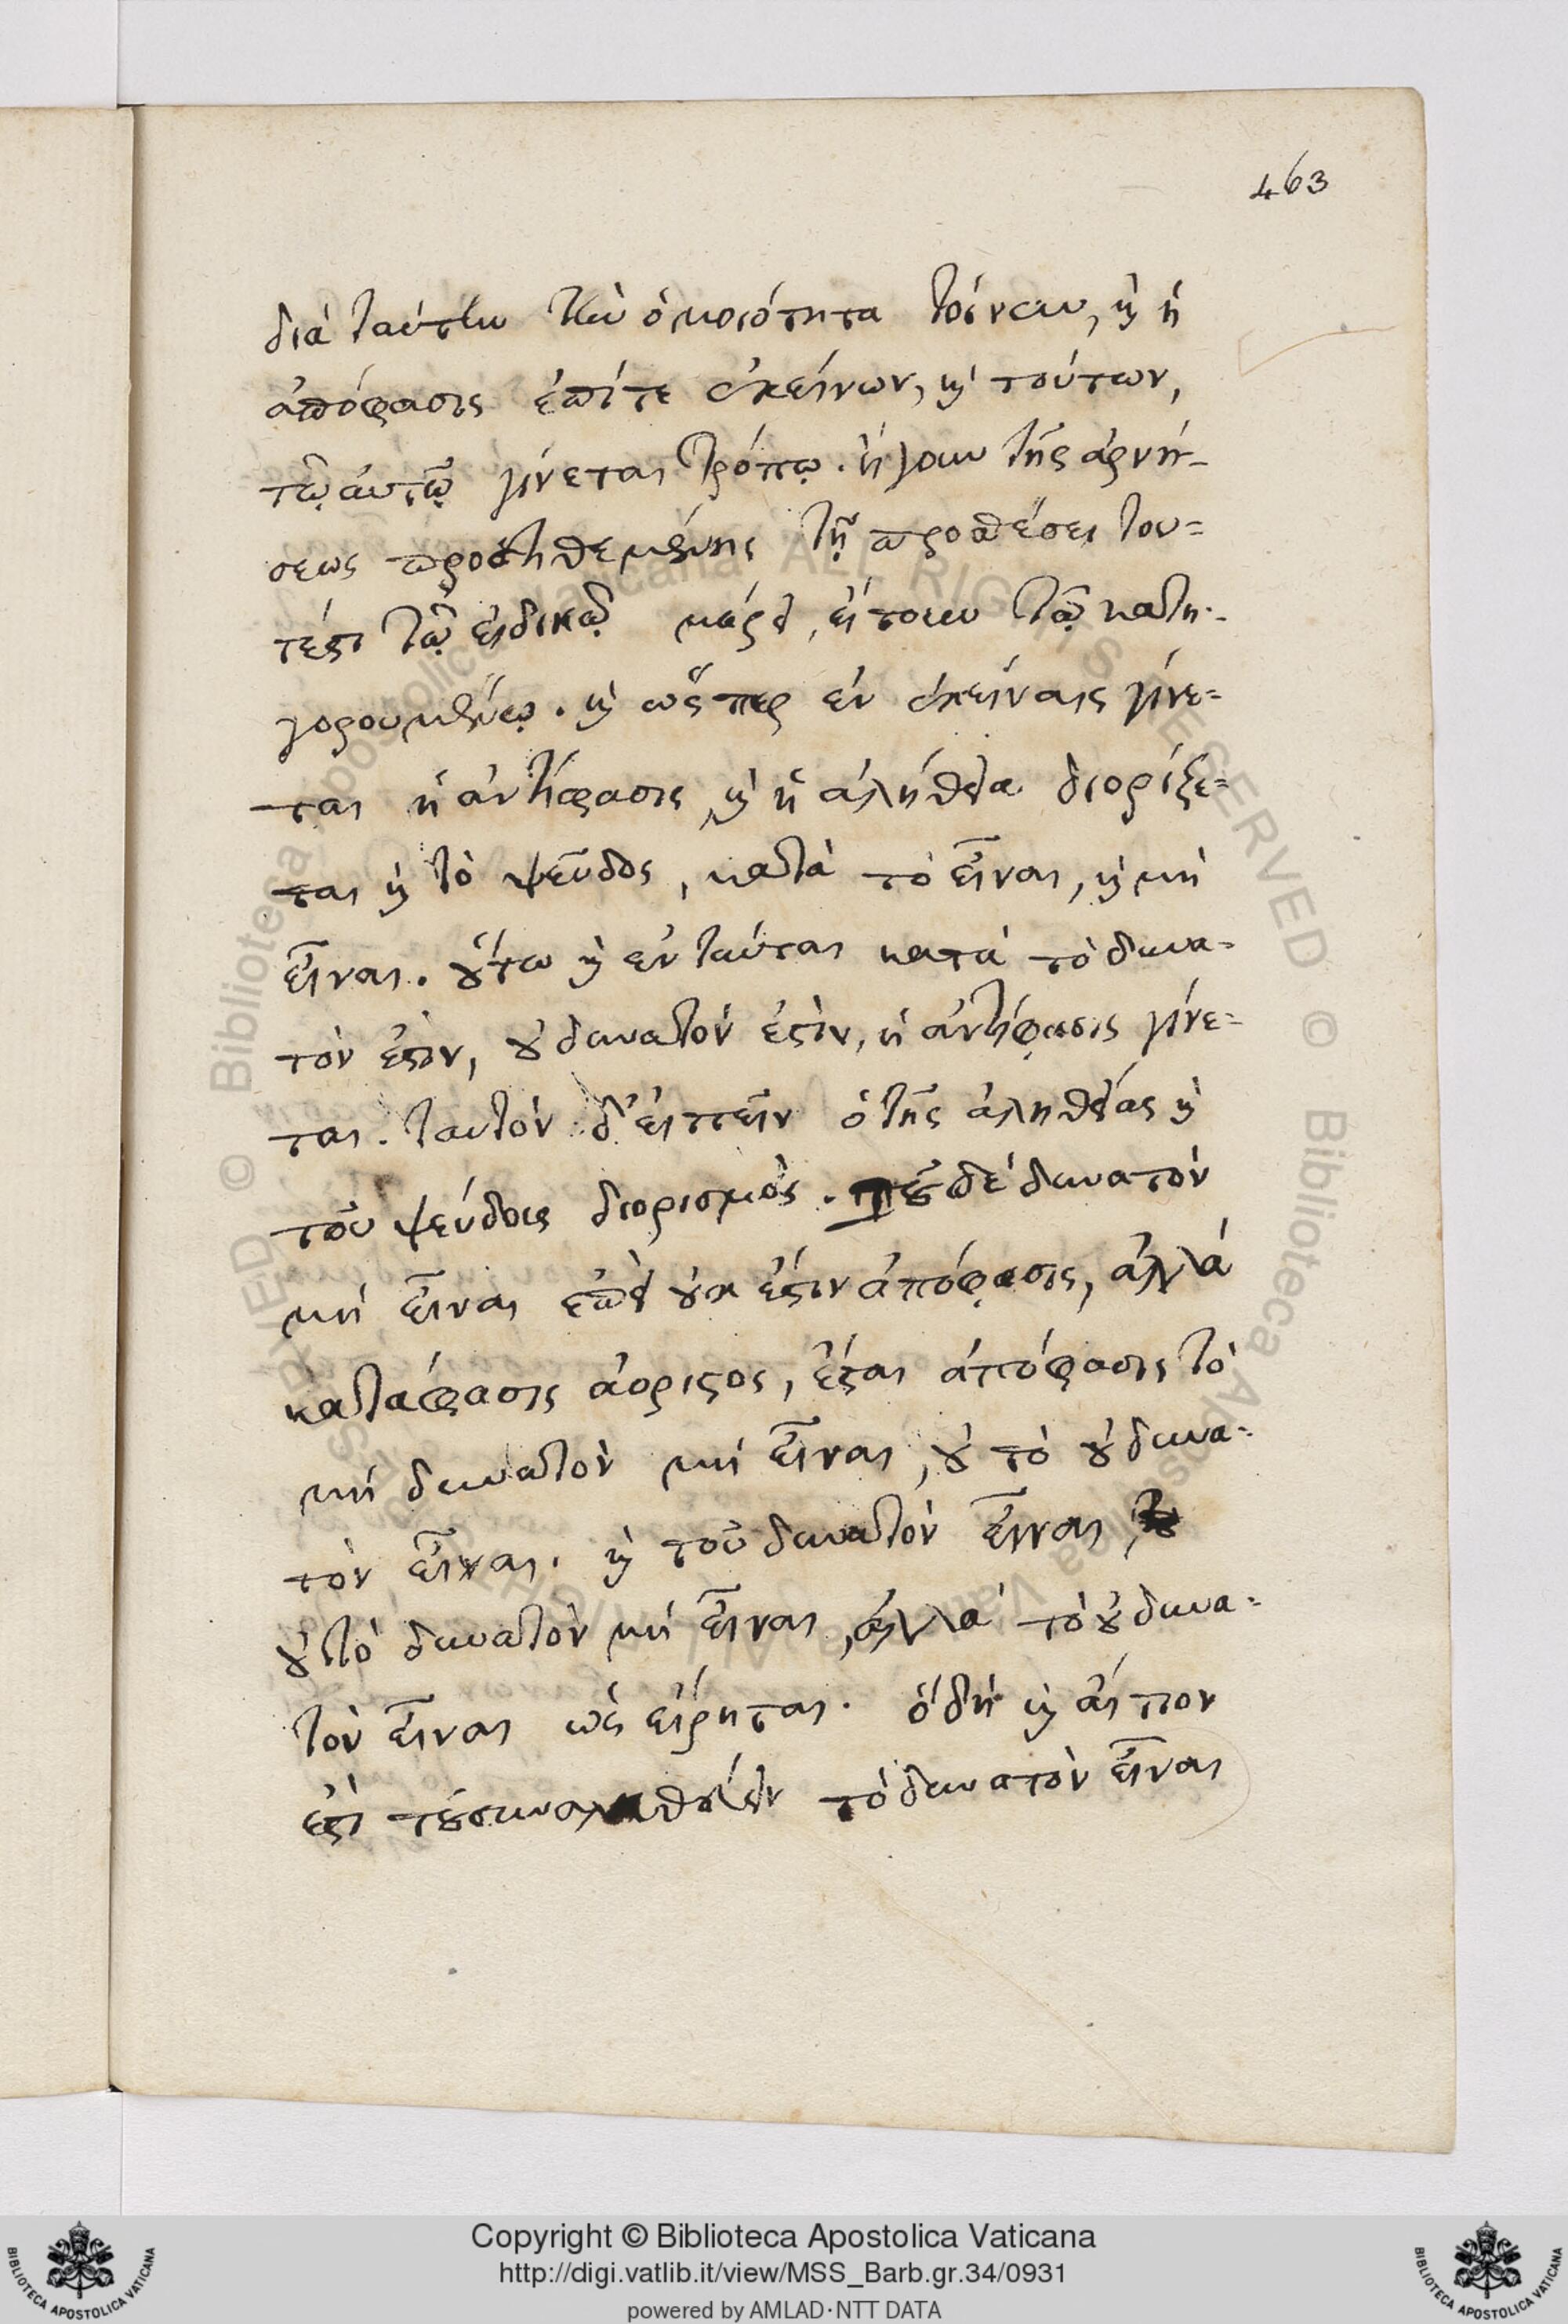 463
διὰ ταύτην τὴν ὁμοιότητα τοίνυν, καὶ ἡ
ἀπόφασις ἐπίτε ἐκείνων, καὶ τούτων,
τῷ αὐτῷ γίνεται τρόπῳ. ἤγουν τῆς ἀρνή-
σεως προστιθεμένης τῇ προσθέσει του=
τέστι τῷ εἰδικῷ μέρει, εἴτουν τῷ κατη-
γορουμένῳ. καὶ ὥσπερ ἐν ἐκείναις γίνε=
ται ἡ ἀντίφασις, καὶ ἡ ἀλήθεια διορίζε=
ται καὶ τὸ ψεῦδος, κατὰ τὸ εἶναι, καὶ μὴ
εἶναι. οὕτω καὶ ἐν ταύταις κατὰ τὸ δυνα=
τόν ἐστιν, οὐ δυνατόν ἐστιν, ἡ ἀντίφασις γίνε=
ται. ταυτὸν δ' εἰπεῖν ὁ τῆς ἀληθείας καὶ
τοῦ ψεύδους διορισμὸς. τοῦ δὲ δυνατὸν
μὴ εἶναι ἐπεὶ οὐκ ἔστιν ἀπόφασις, ἀλλὰ
κατάφασις ἀόριστος, ἔσται ἀπόφασις τὸ
μὴ δυνατὸν μὴ εἶναι, οὐ τὸ οὐ δυνα=
τὸν εἶναι. καὶ τοῦ δυνατὸν εἶναι,
οὐ τὸ δυνατὸν μὴ εἶναι, ἀλλὰ τὸ οὐ δυνα=
τὸν εἶναι ὡς εἴρηται. ὁ δὴ καὶ αἴτιον
ἐστὶ τοῦ τὸ δυνατὸν εἶναι
Copyright © Biblioteca Apostolica Vaticana
http://digi.vatlib.it/view/MSS_Barb.gr.34/0931
powered by AMLAD·NTT DATA